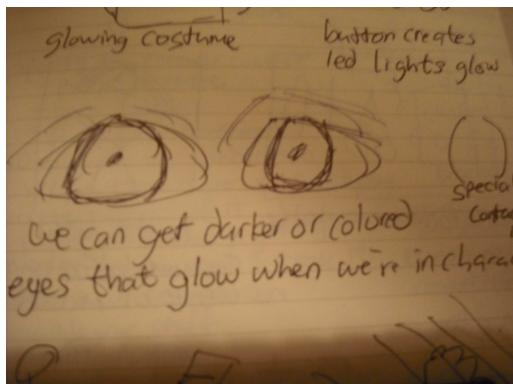 glowing costume
button creates
led lights glow
special
we can get darker or colored
eyes that glow when we're in